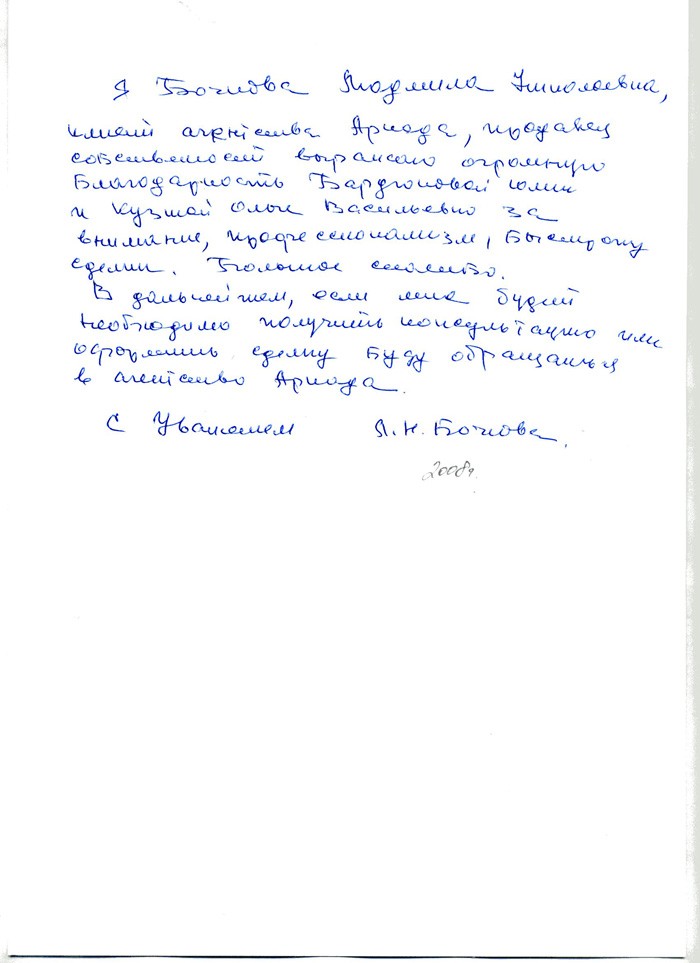 Я Бочкова Людмила Николаевна,
клиент агентства Ариода, продавец
собственностей выражаю огромную
Благодарность Юлии
и Кузмой Ольге Васильевно за
внимание, профессионализм, Быструю
сделки. Большое спасибо.
В дальнейшем, если мне будет
необходимо получить консультацию или
оформить сделку Буду обращаться
в агентство Ариода.
С Уважением Л.Н. Бочкова.
2008г.